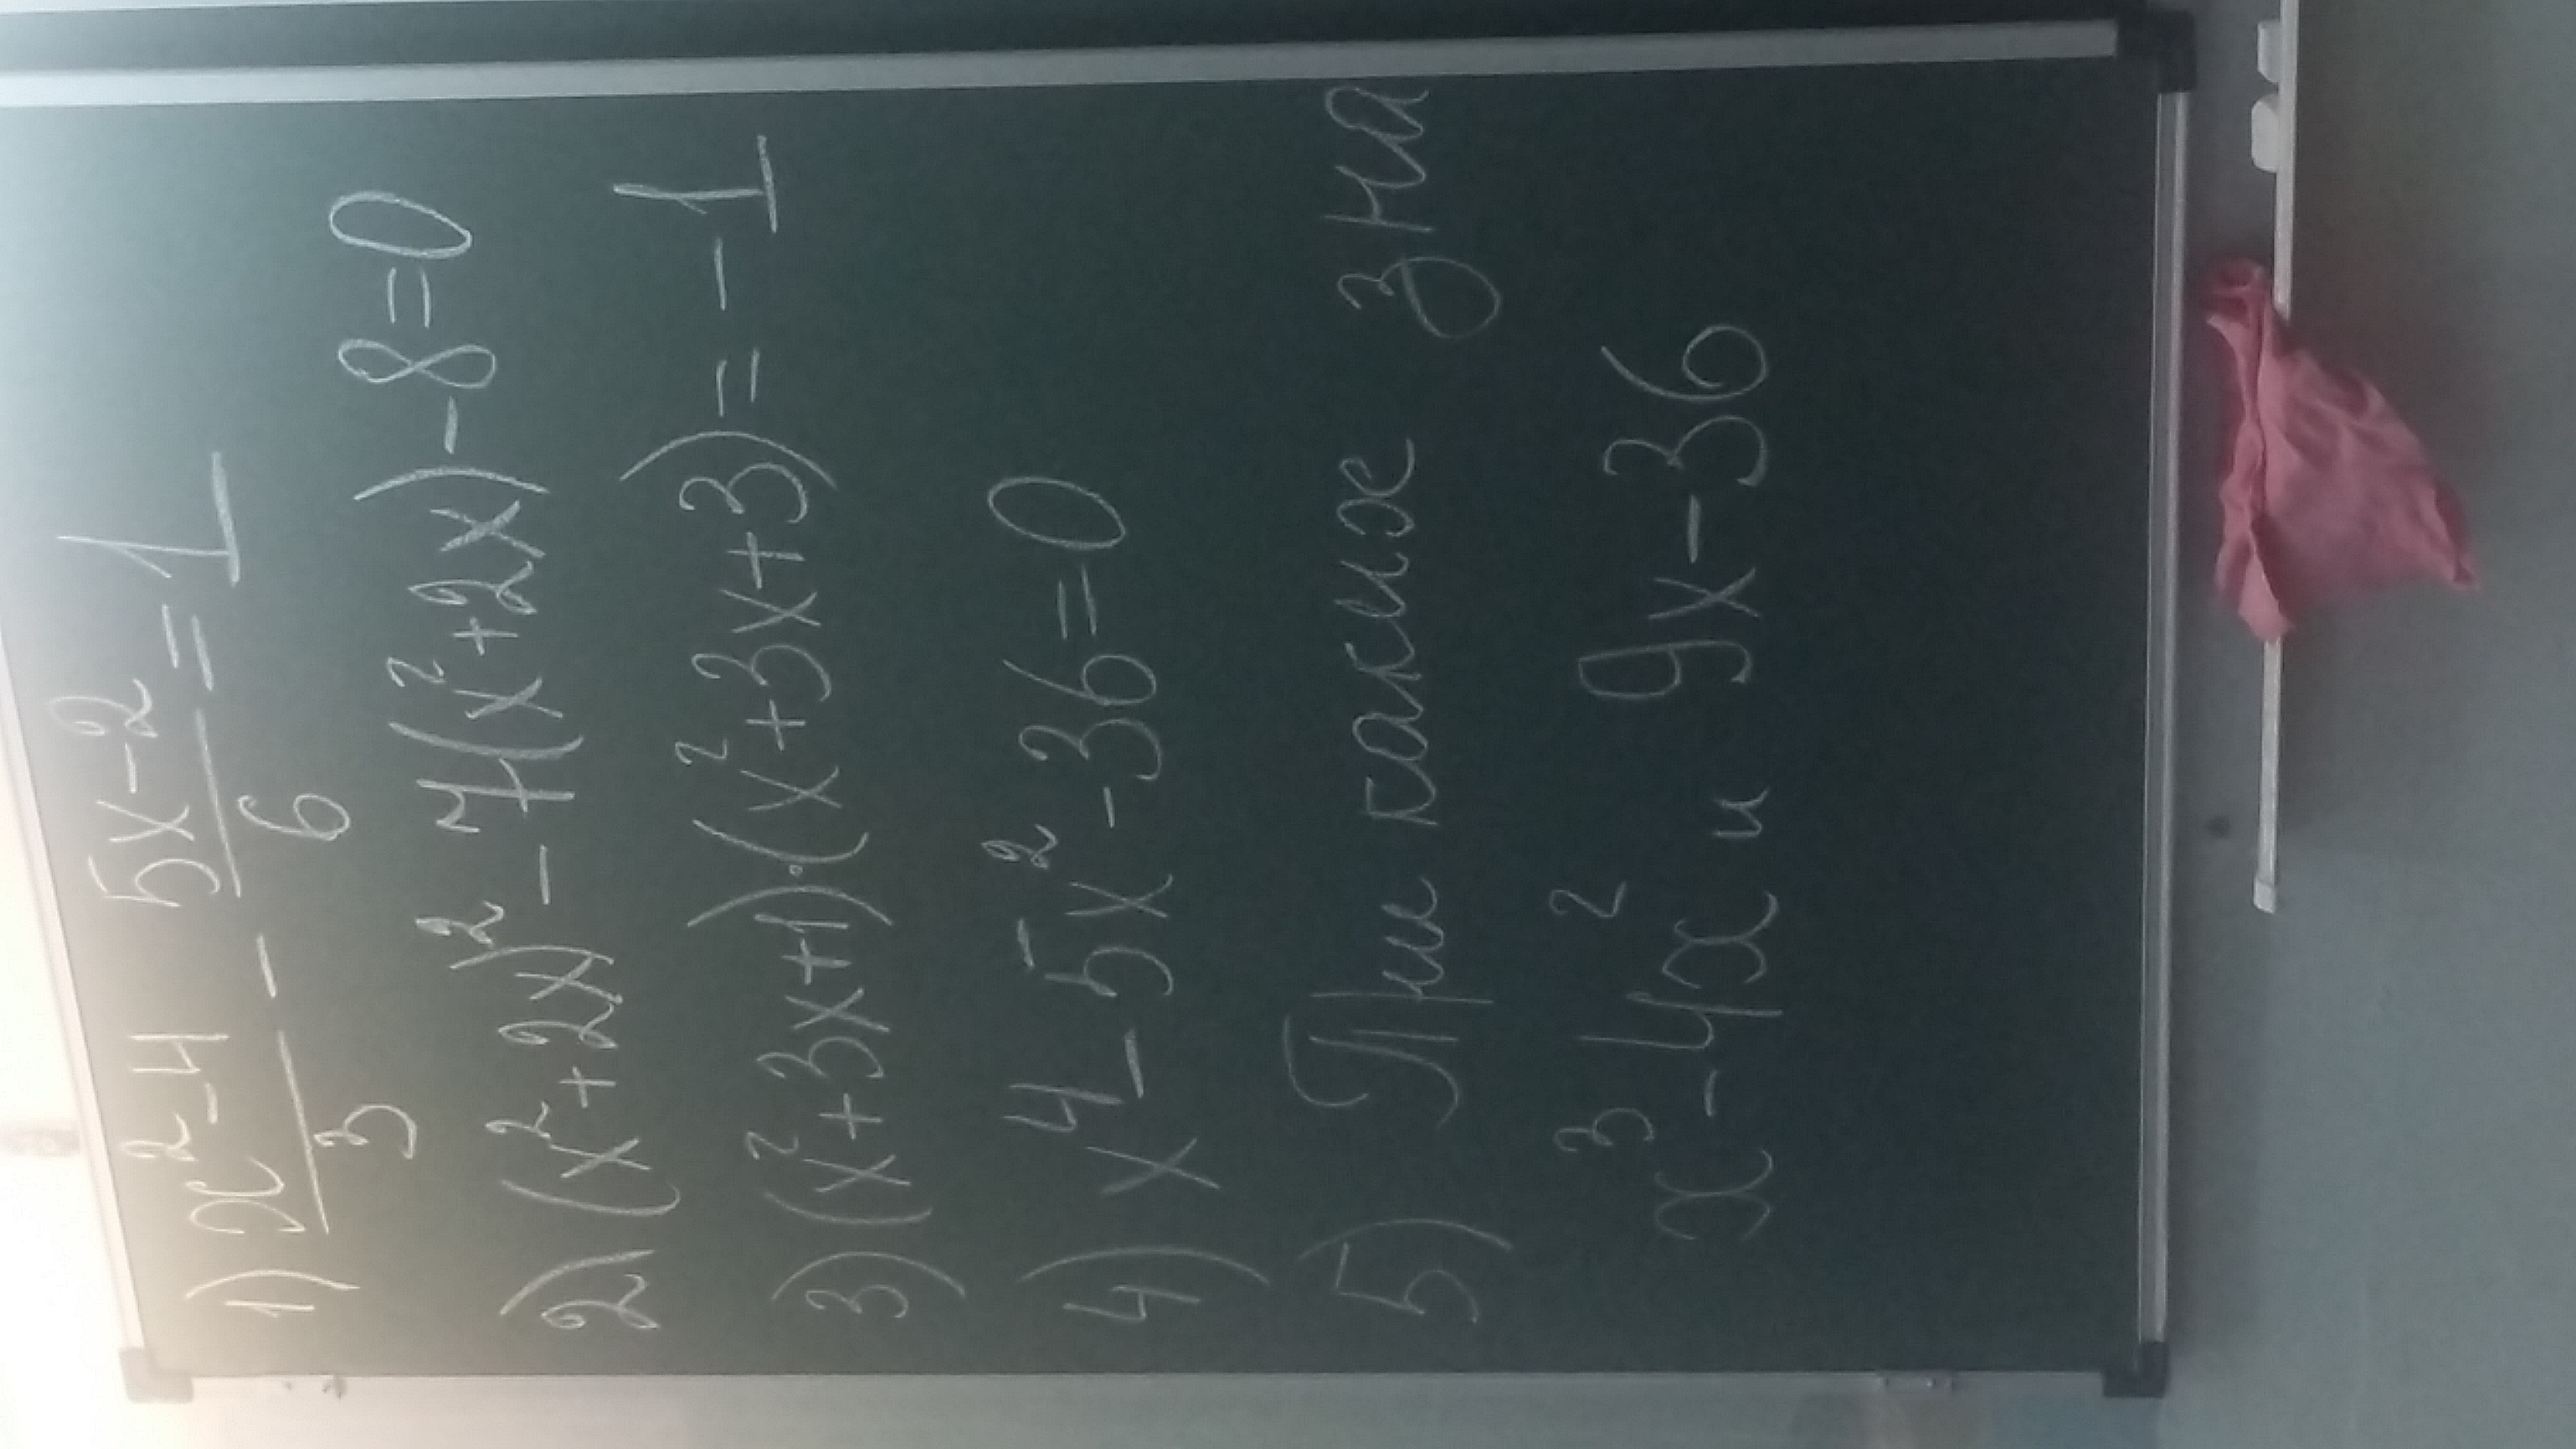 1) x²-4/3 - 5x-2/6 = 1
2) (x²+2x)² - 7(x²+2x) - 8 = 0
3) (x²+3x+1)·(x²+3x+3) = -1
4) x⁴ - 5x² - 36 = 0
5) При каких зна
x³ - 4x² и 9x - 36